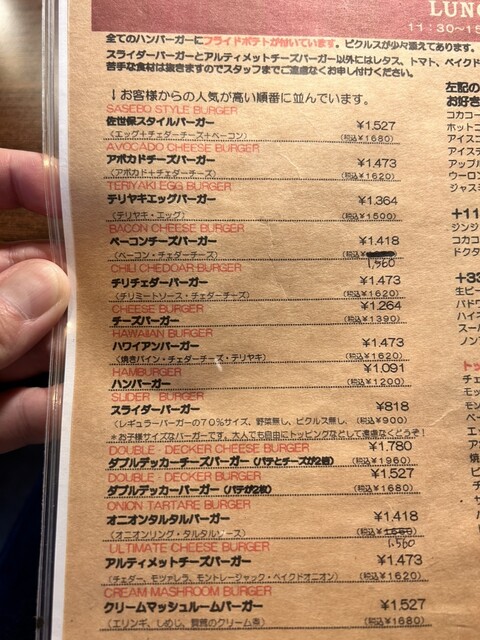 LUNC
11:30~15
全てのハンバーガーにフライドポテトが付いています。ピクルスが少々添えてあります。
スライダーバーガーとアルティメットチーズバーガー以外にはレタス、トマト、ベイクド
苦手な食材は抜きますのでスタッフまでご遠慮なくお申し付けください。
↓お客様からの人気が高い順番に並んでいます。
SASEBO STYLE BURGER
佐世保スタイルバーガー ¥1.527
(エッグ+チェダーチーズ+ベーコン) (税込¥1680)
AVOCADO CHEESE BURGER
アボカドチーズバーガー ¥1.473
(アボカド+チェダーチーズ) (税込¥1620)
TERIYAKI EGG BURGER
テリヤキエッグバーガー ¥1.364
(テリヤキ・エッグ) (税込¥1500)
BACON CHEESE BURGER
ベーコンチーズバーガー ¥1.418
(ベーコン・チェダーチーズ) (税込¥
1,560
CHILI CHEDDAR BURGER
チリチェダーバーガー ¥1.473
(チリミートソース・チェダーチーズ) (税込¥1620)
CHEESE BURGER ¥1.264
チーズバーガー (税込¥1390)
HAWAIIAN BURGER
ハワイアンバーガー ¥1.473
(焼きパイン・チェダーチーズ・テリヤキ) (税込¥1620)
HAMBURGER ¥1.091
ハンバーガー (税込¥1200)
SLIDER BURGER
スライダーバーガー ¥818
(レギュラーバーガーの70%サイズ、野菜無し、ピクルス無し、 (税込¥900)
*お子様サイズなバーガーです、大人でも自由にトッピングなどして遠慮なくどうぞ!
DOUBLE-DECKER CHEESE BURGER ¥1.780
ダブルデッカーチーズバーガー(パテとチーズが2倍) (税込¥1960)
DOUBLE-DECKER BURGER ¥1.527
ダブルデッカーバーガー(パテが2枚) (税込¥1680)
ONION TARTARE BURGER
オニオンタルタルバーガー ¥1.418
(オニオンリング・タルタルソース) (税込¥1580)
1,560
ULTIMATE CHEESE BURGER
アルティメットチーズバーガー ¥1.473
(チェダー、モツァレラ、モントレージャック・ベイクドオニオン) (税込¥1620)
CREAM MASHROOM BURGER
クリームマッシュルームバーガー ¥1.527
(エリンギ、しめじ、舞茸のクリーム煮) (税込¥1680)
左記の
お好き
コカコー
ホットコ
アイスコ
アイステ
アップル
ウーロン
ジャスミ
+11
ジンジ
コカコ
ドクタ
+33
生ビー
バドワ
ハイネ
スーパ
ノンア
トッ
チェ
モッ
モン
ベー
エ
ア
焼
ピ
チ
サ